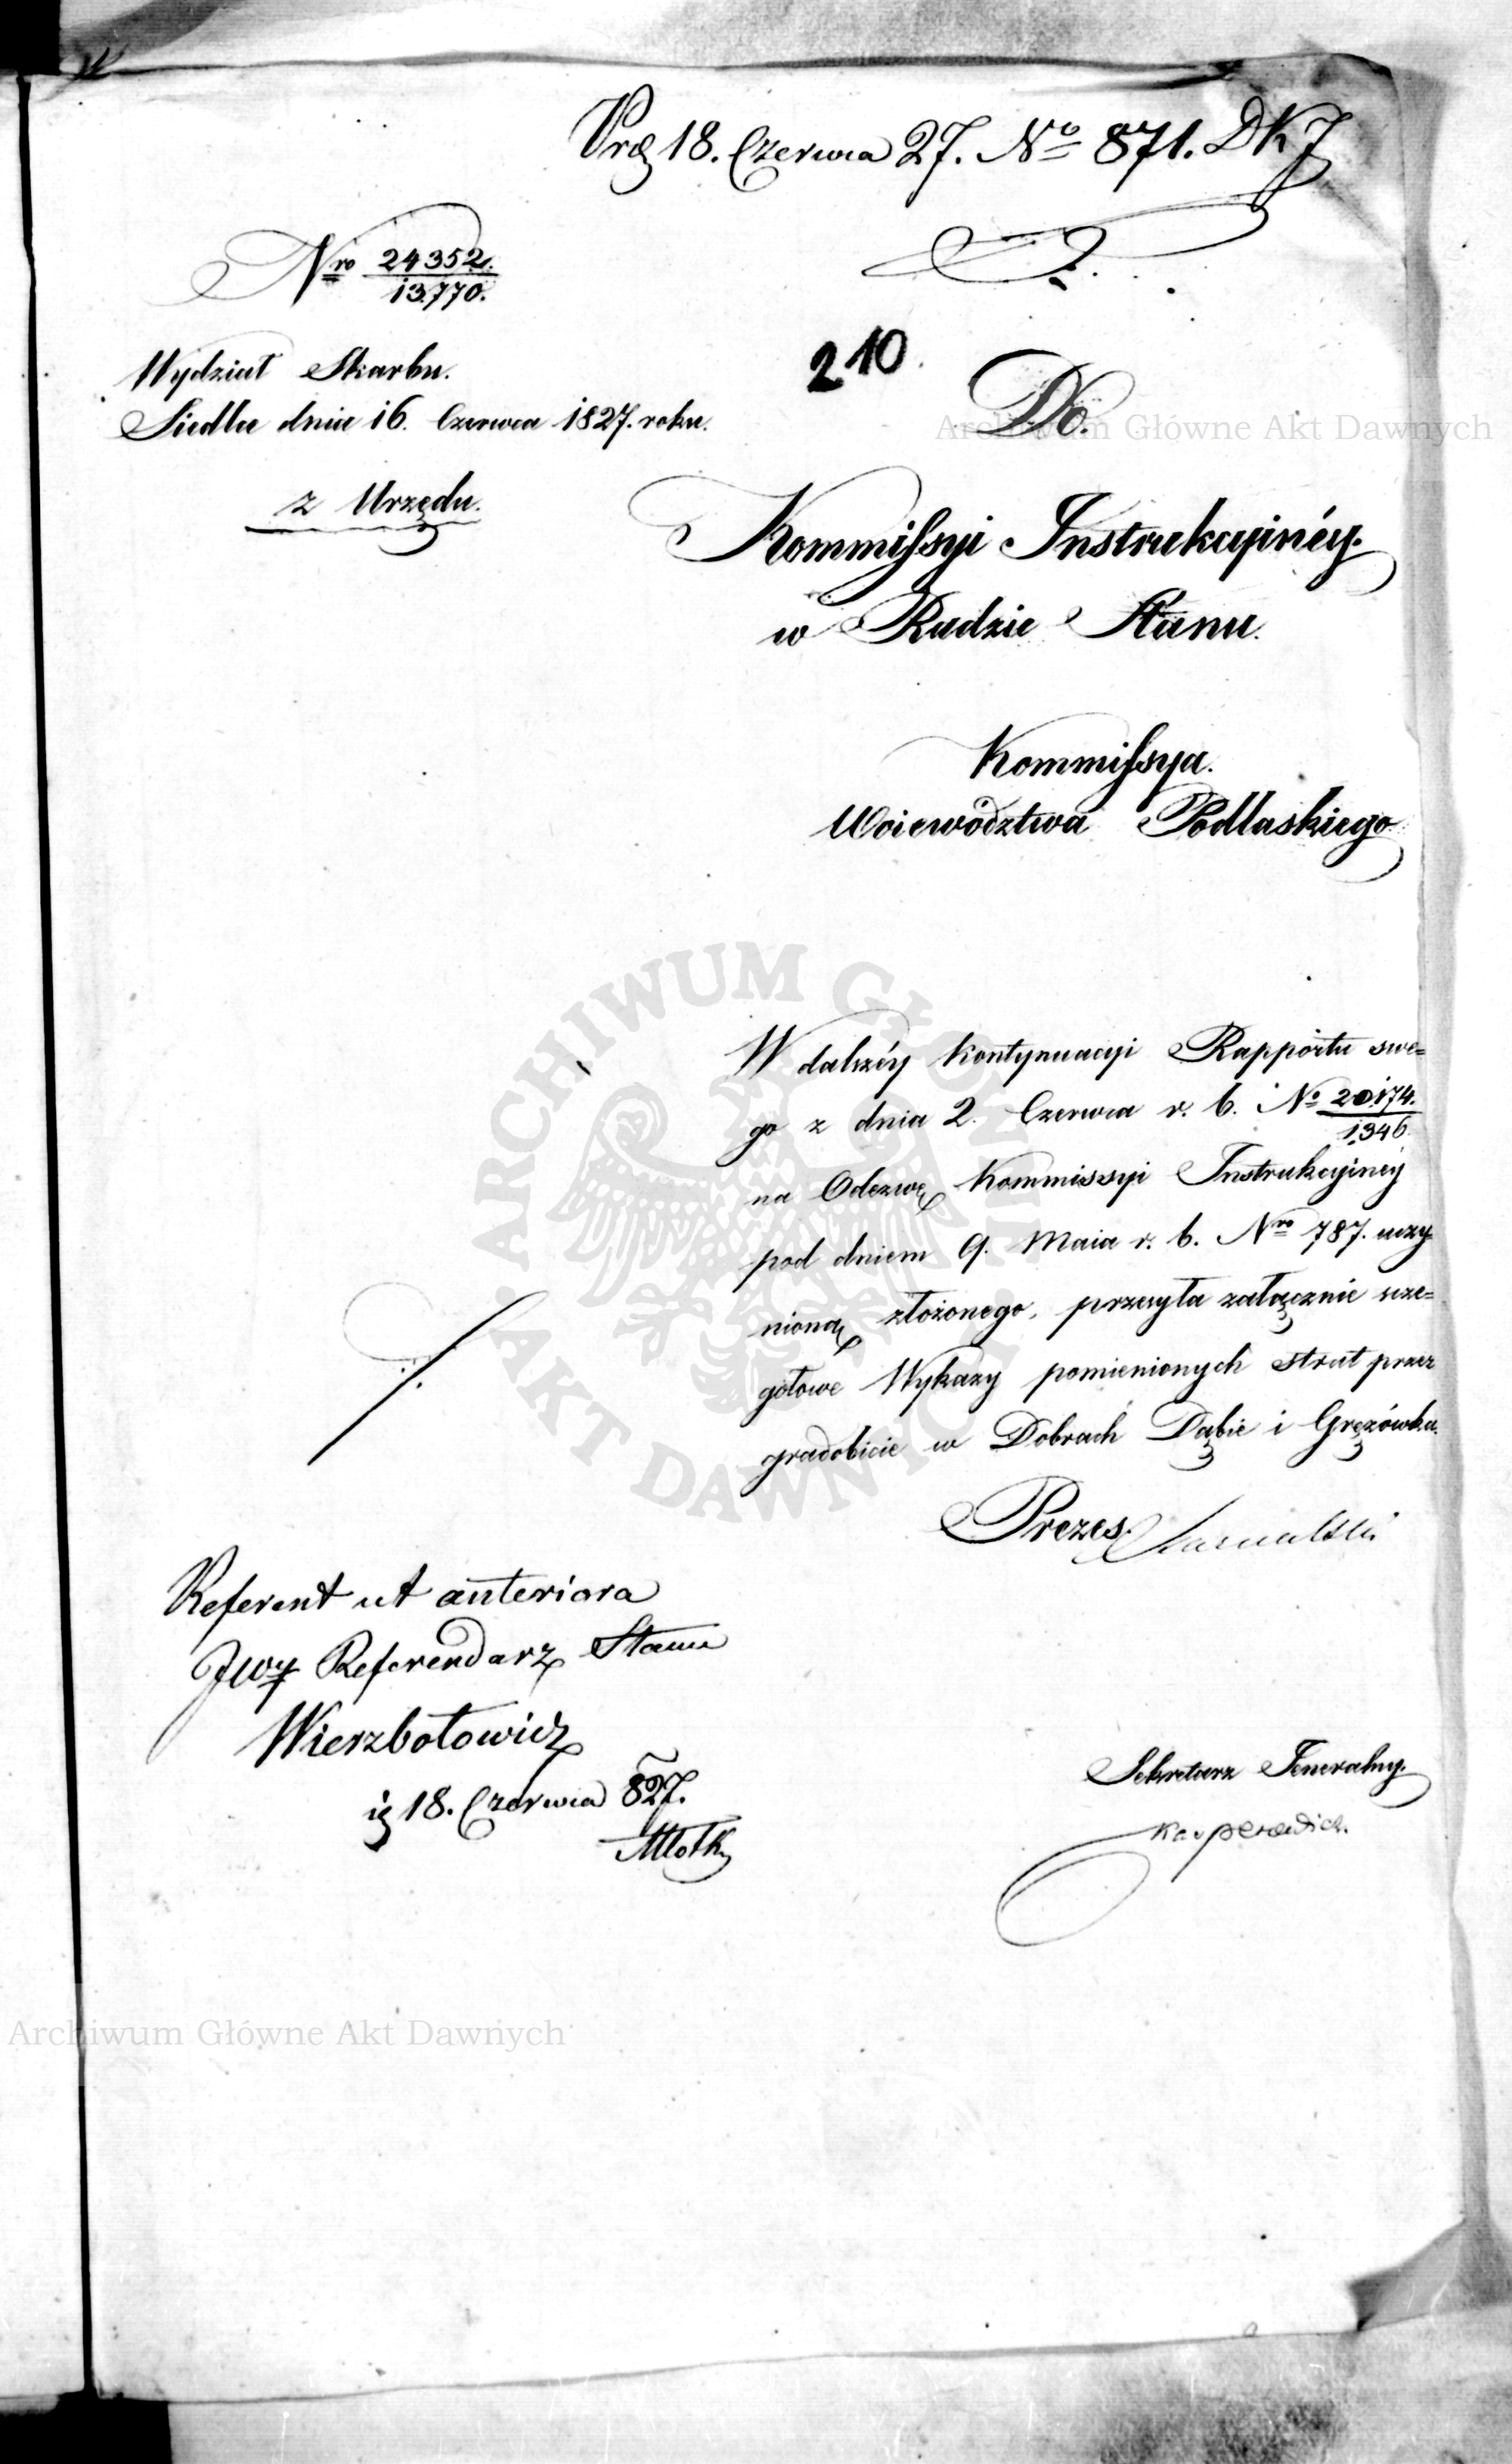 Prd 18. Czerwca 27. No 871. DKJ
Nro 24352.
13,770.
210.
Wydział Skarbu.
Siedlce dnia 16. Czerwca 1827. roku.
z Urzędu.
Do.
Kommissyi Instrukcyinéy.
w Radzie Stanu.
Kommissya.
Woiewództwa Podlaskiego
W dalszéy kontynuacyi Rapportu swe=
go z dnia 2. Czerwca r. b. No 20,174.
1,346.
na Odezwę Kommissyi Instrukcyinéy
pod dniem 9. Maia r. b. Nro 787. uczy
nioną złożonego, przesyła załącznie szcze=
gółowe Wykazy pomienionych strat przez
gradobicie w Dobrach Dąbie i Gręzówka.
Prezes.
Referent ut anteriora
JWy Referendarz Stanu
Wierzbołowicz
18. Czerwca 827.
Sekretarz Jeneralny.
Kasperowicz.
ARCHIWUM GŁÓWNE AKT DAWNYCH
Archiwum Główne Akt Dawnych
Archiwum Główne Akt Dawnych